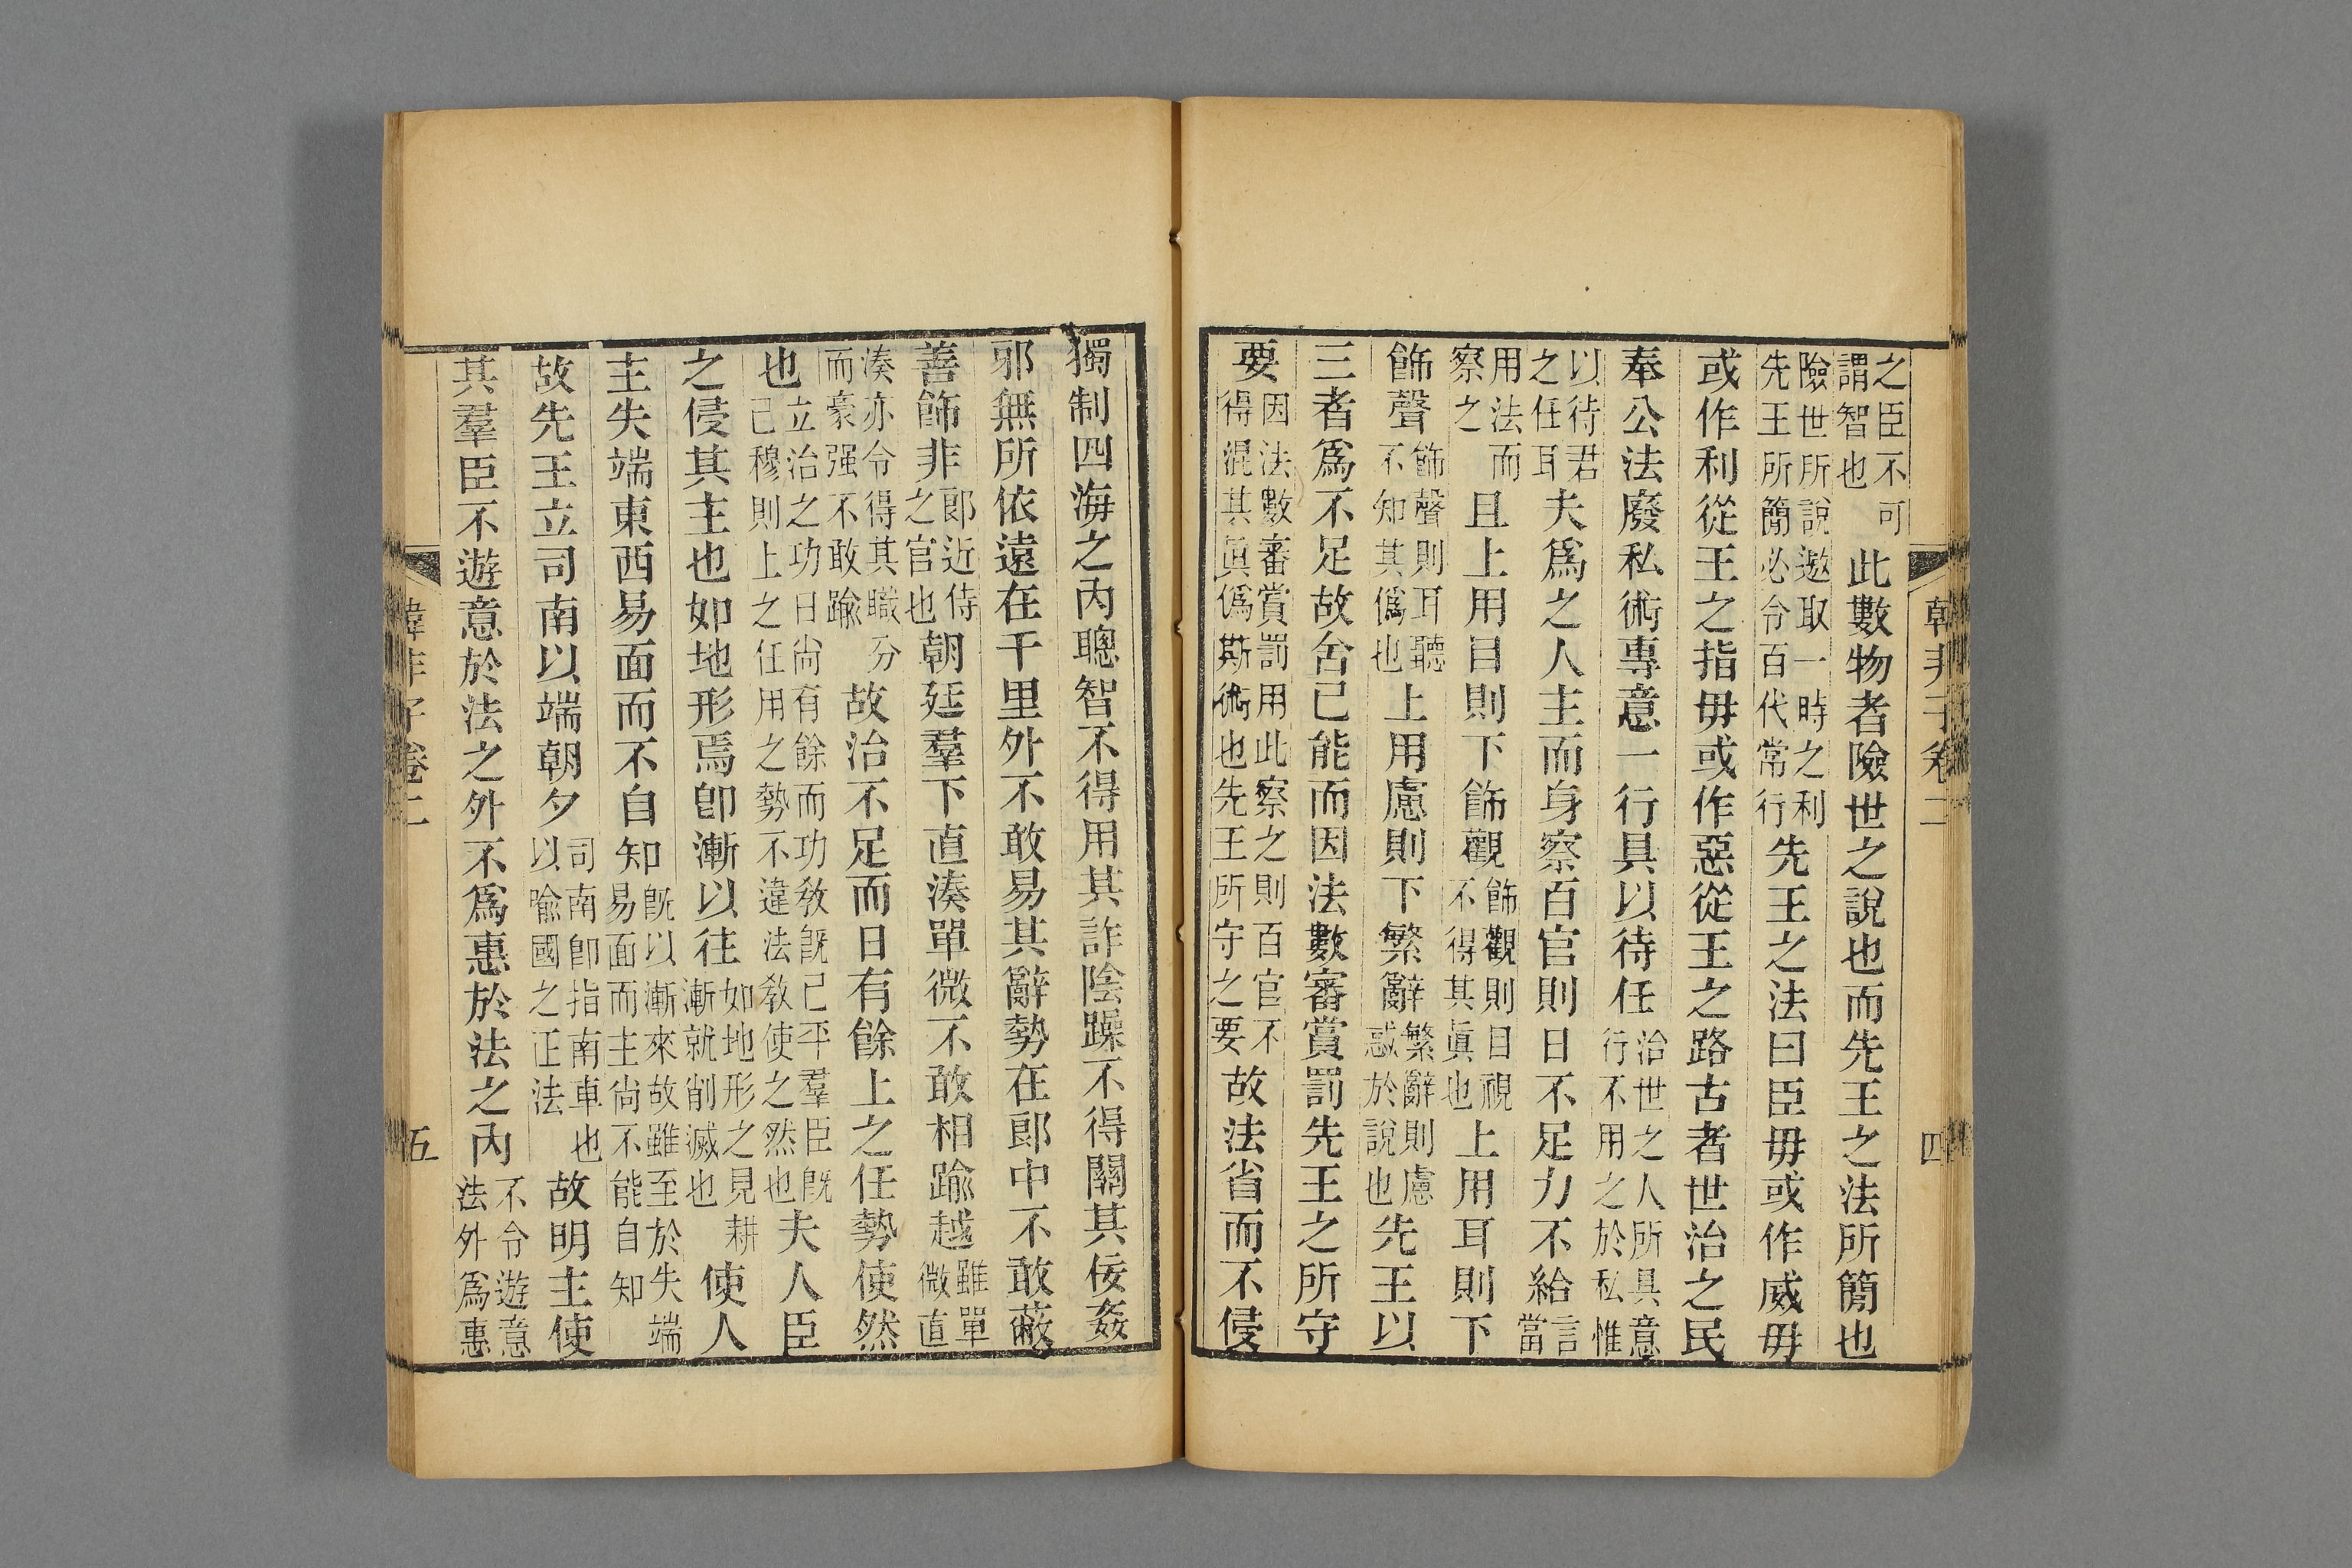 韓非子卷二
四
之臣不可
謂智也
此數物者險世之說也而先王之法所簡也
險世所說邀取一時之利
先王所簡必令百代常行
先王之法曰臣毋或作威毋
或作利從王之指毋或作惡從王之路古者世治之民
奉公法廢私術專意一行具以待任
治世之人所具意
行不用之於私惟
以待君
之任耳
夫爲之人主而身察百官則日不足力不給
言
當
用法而
察之
且上用目則下飾觀
飾觀則目視
不得其眞也
上用耳則下
飾聲
飾聲則耳聽
不知其僞也
上用慮則下繁辭
繁辭則慮
惑於說也
先王以
三者爲不足故舍己能而因法數審賞罰先王之所守
要
因法數審賞罰用此察之則百官不
得混其眞僞斯術也先王所守之要
故法省而不侵
獨制四海之內聰智不得用其詐陰躁不得關其佞姦
邪無所依遠在千里外不敢易其辭勢在郞中不敢蔽
善飾非
郞近侍
之官也
朝廷羣下直湊單微不敢相踰越
雖單
微直
湊亦令得其職分
而豪强不敢踰
故治不足而日有餘上之任勢使然
也
立治之功日尙有餘而功敎旣己平羣臣旣
己穆則上之任用之勢不違法敎使之然也
夫人臣
之侵其主也如地形焉卽漸以往
如地形之見耕
漸就削滅也
使人
主失端東西易面而不自知
旣以漸來故雖至於失端
易面而主尙不能自知
故先王立司南以端朝夕
司南卽指南車也
以喻國之正法
故明主使
其羣臣不遊意於法之外不爲惠於法之內
不令遊意
法外爲惠
韓非子卷二
五